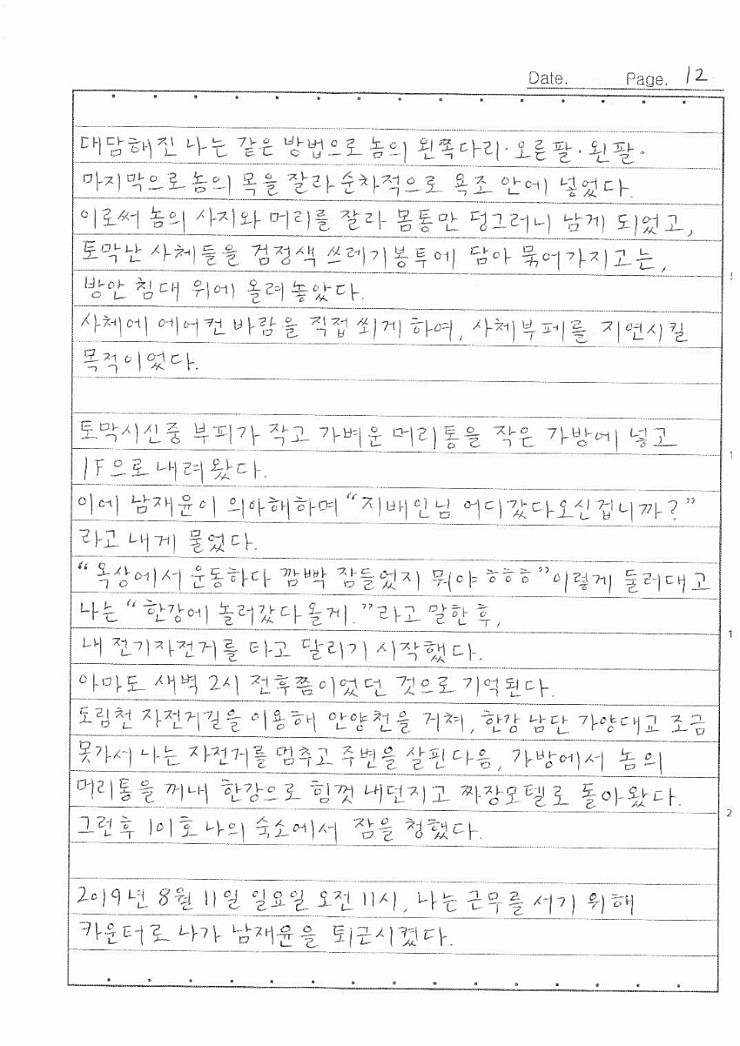 Date. Page. 12
대담해진 나는 같은 방법으로 놈의 왼쪽다리·오른팔·왼팔·
마지막으로 놈의 목을 잘라 순차적으로 욕조 안에 넣었다.
이로써 놈의 사지와 머리를 잘라 몸통만 덩그러니 남게 되었고,
토막난 사체들을 검정색 쓰레기봉투에 담아 묶어가지고는,
방안 침대 위에 올려놓았다.
사체에 에어컨 바람을 직접 쐬게 하여, 사체부패를 지연시킬
목적이었다.
토막시신중 부피가 작고 가벼운 머리통을 작은 가방에 넣고
1F으로 내려왔다.
이에 남재윤이 의아해하며 “지배인님 어디갔다오신겁니까?”
라고 내게 물었다.
“옥상에서 운동하다 깜빡 잠들었지 뭐야 ㅎㅎㅎ”이렇게 둘러대고
나는 “한강에 놀러갔다올게.”라고 말한 후,
내 전기자전거를 타고 달리기 시작했다.
아마도 새벽 2시 전후쯤이었던 것으로 기억된다.
도림천 자전거길을 이용해 안양천을 거쳐, 한강 남단 가양대교 조금
못가서 나는 자전거를 멈추고 주변을 살핀다음, 가방에서 놈의
머리통을 꺼내 한강으로 힘껏 내던지고 짜장모텔로 돌아왔다.
그런후 101호 나의 숙소에서 잠을 청했다.
2019년 8월 11일 일요일 오전 11시, 나는 근무를 서기 위해
카운터로 나가 남재윤을 퇴근시켰다.